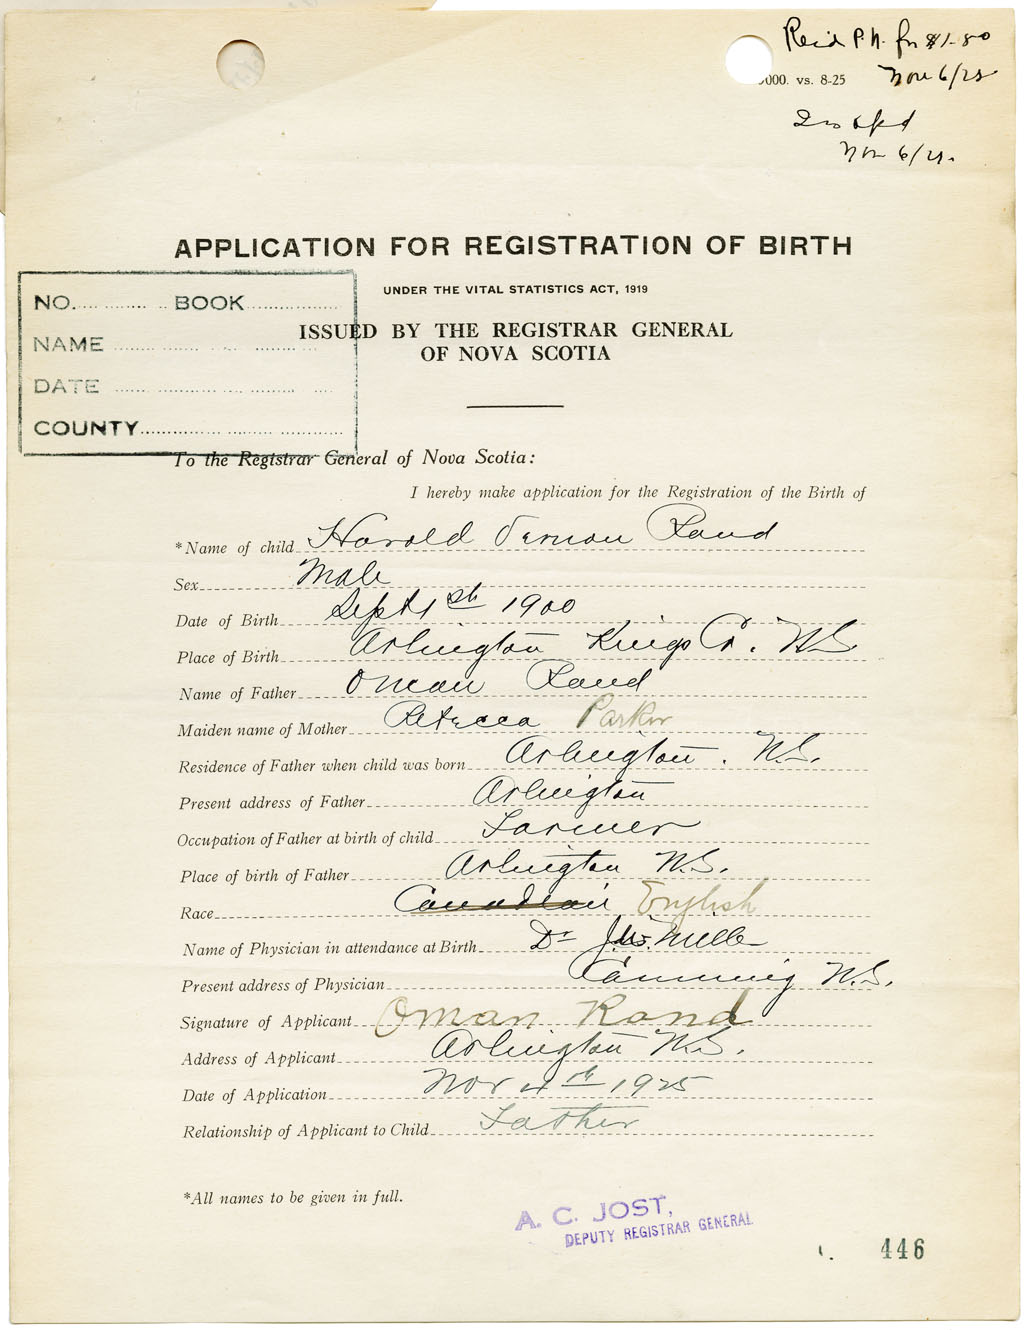 Reid P.N. for $1.80
000. vs. 8-25 Nov 6/25
Nov 6/25.
APPLICATION FOR REGISTRATION OF BIRTH
UNDER THE VITAL STATISTICS ACT, 1919
ISSUED BY THE REGISTRAR GENERAL
OF NOVA SCOTIA
NO. BOOK
NAME
DATE
COUNTY
To the Registrar General of Nova Scotia:
I hereby make application for the Registration of the Birth of
*Name of child Harold Vernon Rand
Sex Male
Date of Birth Sept 1st 1900
Place of Birth Arlington Kings Co. N.S.
Name of Father Oman Rand
Maiden name of Mother Rebecca Parker
Residence of Father when child was born Arlington. N.S.
Present address of Father Arlington
Occupation of Father at birth of child Farmer
Place of birth of Father Arlington N.S.
Race Canadian English
Name of Physician in attendance at Birth Dr J.W. Miller
Present address of Physician Canning N.S.
Signature of Applicant Oman Rand
Address of Applicant Arlington N.S.
Date of Application Nov 4th 1925
Relationship of Applicant to Child Father
*All names to be given in full.
A. C. JOST,
DEPUTY REGISTRAR GENERAL
446